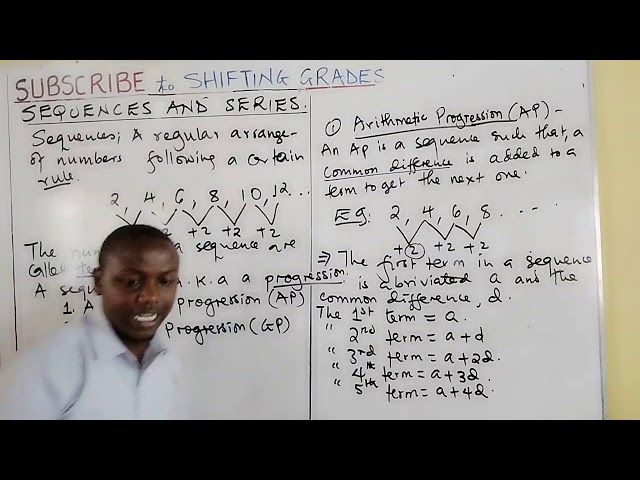 SUBSCRIBE to SHIFTING GRADES
SEQUENCES AND SERIES.
Sequences; A regular arrange-
of numbers following a certain
rule.
2, 4, 6, 8, 10, 12...
+2 +2 +2
The a sequence are
called
A a.k.a a progression.
1. A progression (AP)
Progression (GP)
① Arithmatic Progression (AP) -
An Ap is a sequence such that, a
common difference is added to a
term to get the next one.
Eg. 2, 4, 6, 8 . - - -
+2 +2 +2
⇒ The first term in a sequence
is abriviated a and the
common difference, d.
The 1st term = a.
" 2nd term = a+d
" 3rd term = a+2d.
" 4th term = a+3d
" 5th term = a+4d.